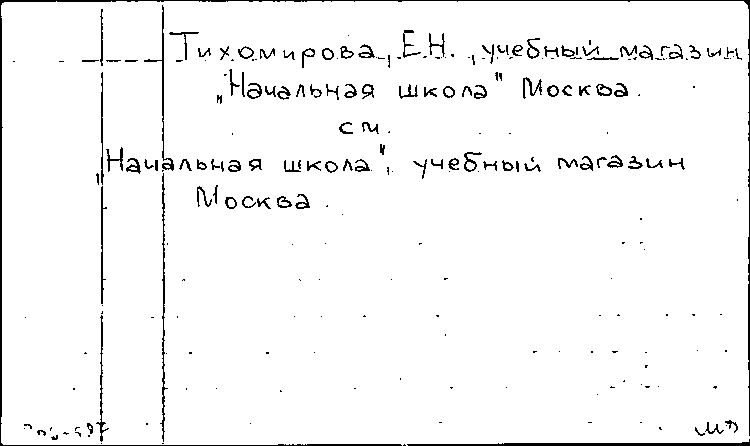 Тихомирова, Е.Н., учебный магазин
„Начальная школа" Москва.
см.
„Начальная школа", учебный магазин
Москва.